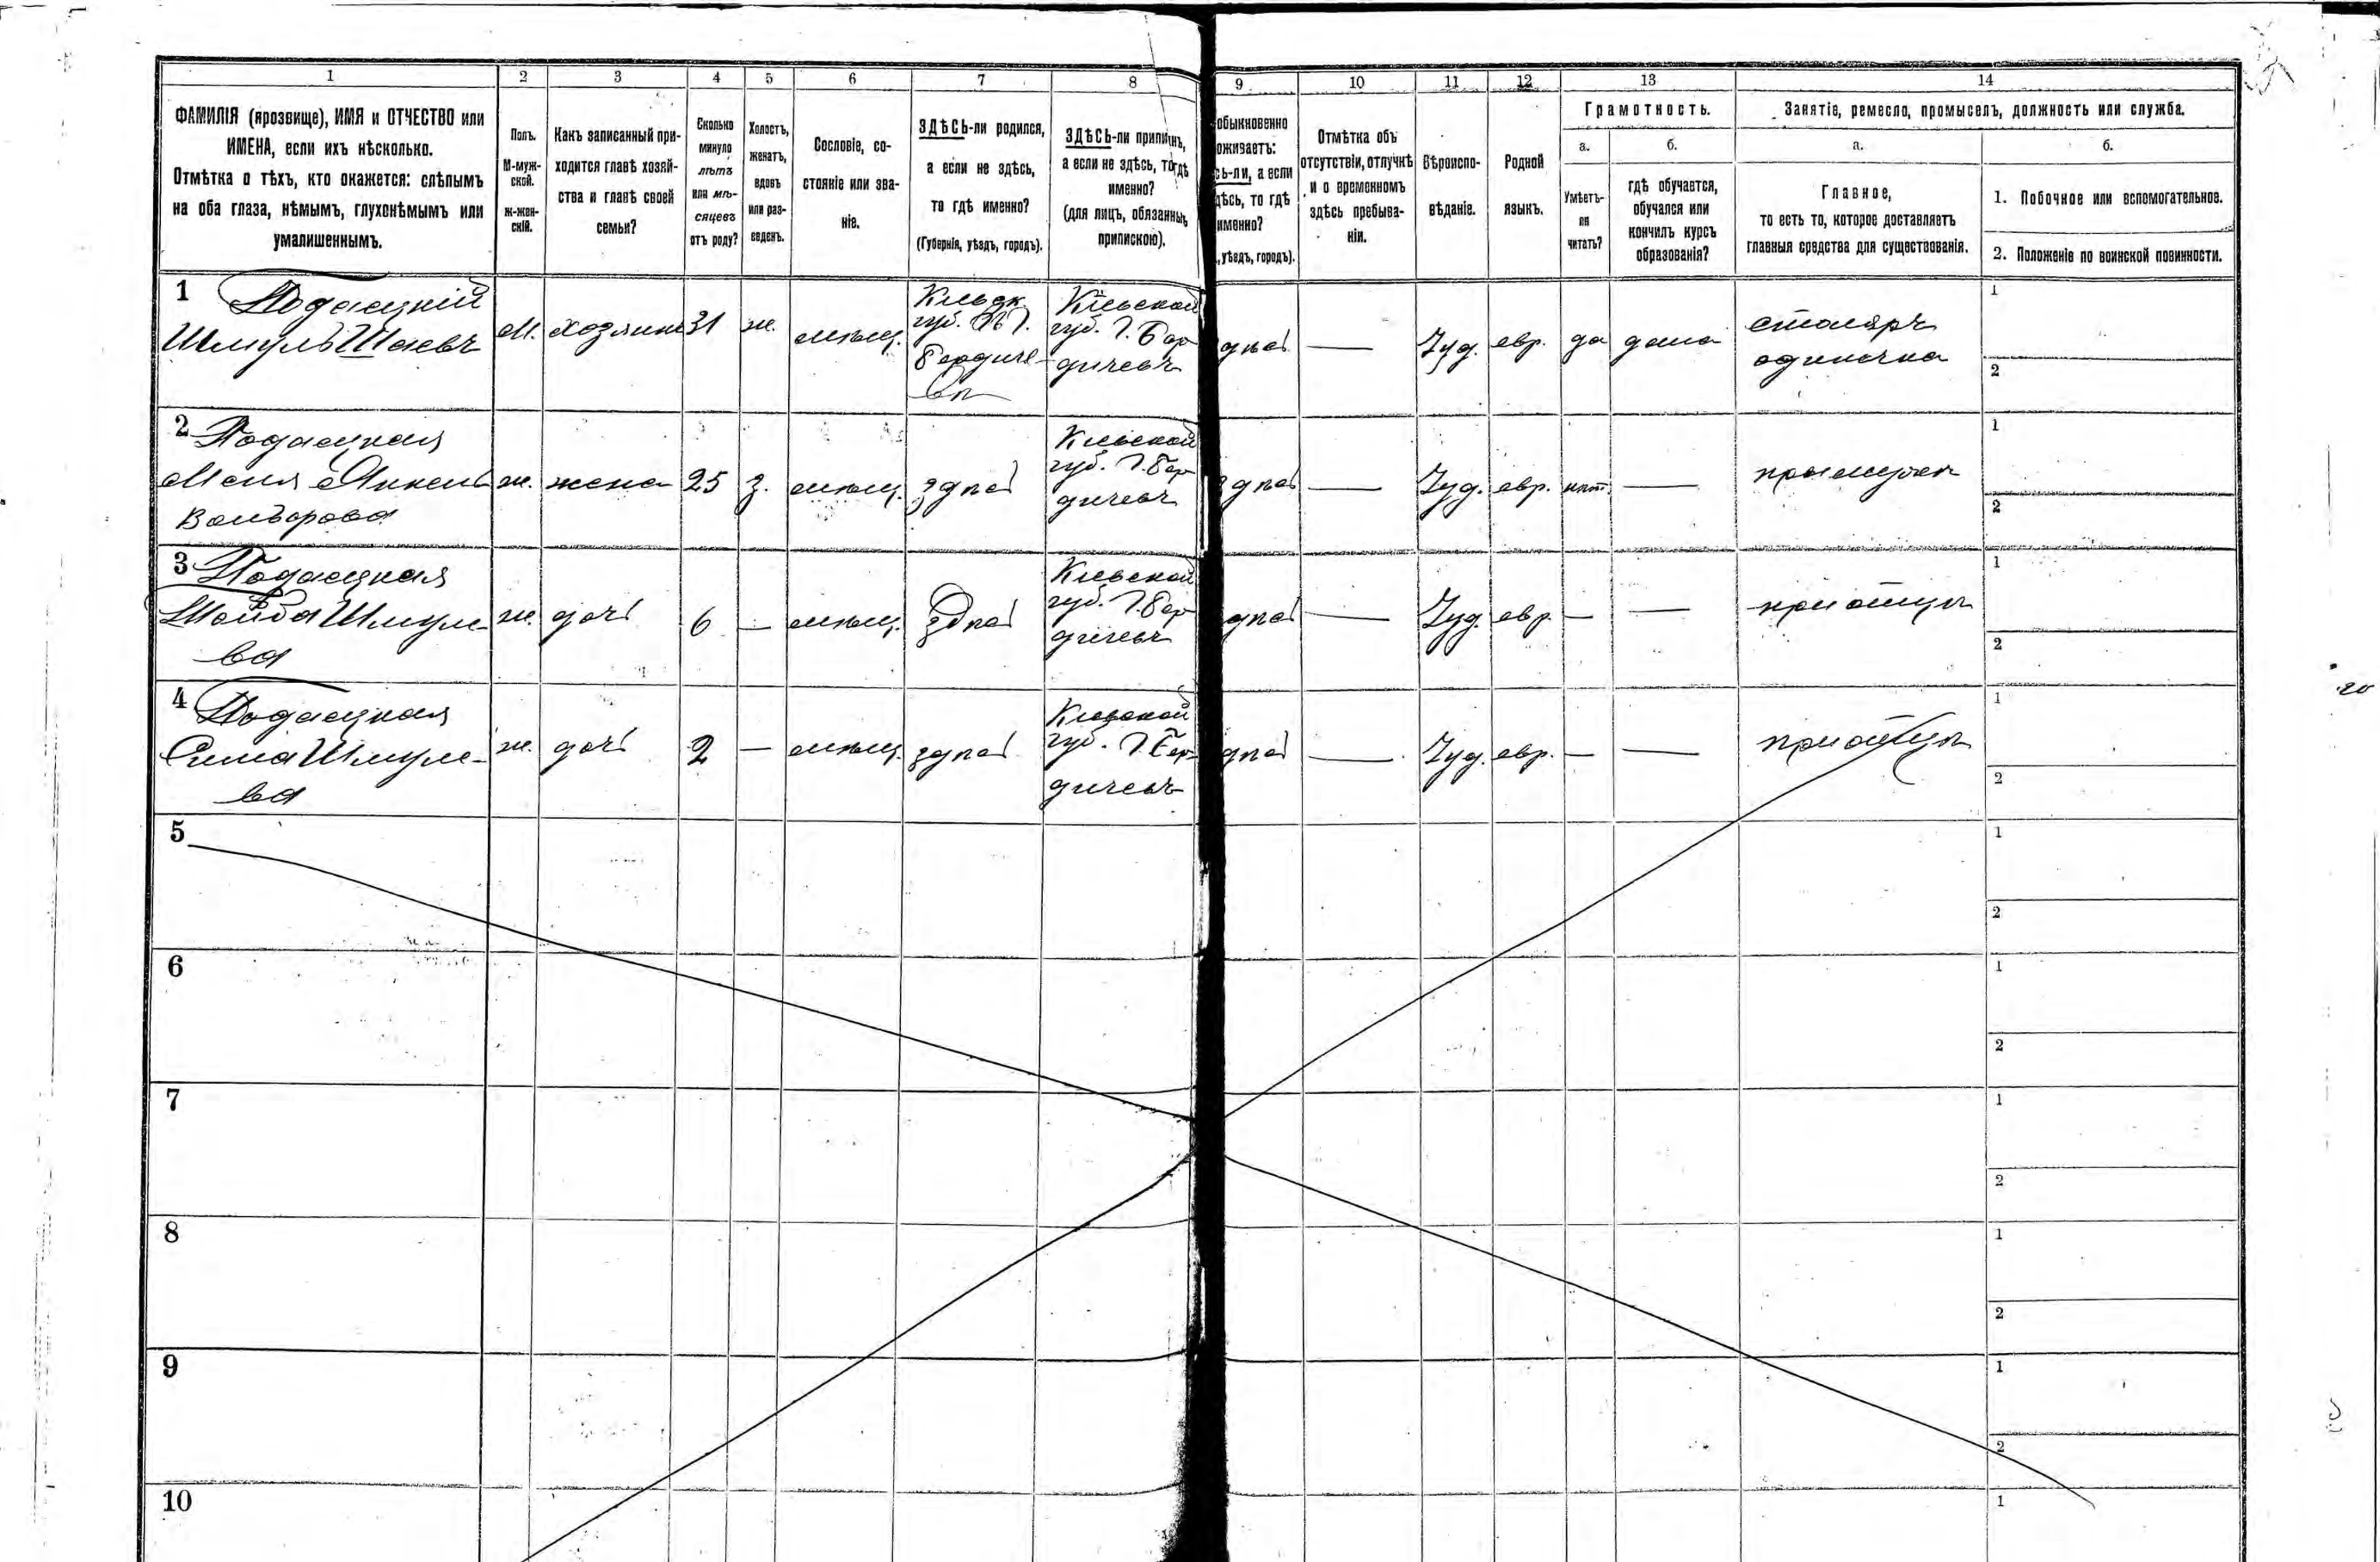 1 2 3 4 5 6 7 8 9 10 11 12 13 14
ФАМИЛІЯ (прозвище), ИМЯ и ОТЧЕСТВО или
ИМЕНА, если ихъ нѣсколько.
Отмѣтка о тѣхъ, кто окажется: слѣпымъ
на оба глаза, нѣмымъ, глухонѣмымъ или
умалишеннымъ.
Полъ.
М-муж-
ской.
Ж-жен-
скій.
Какъ записанный при-
ходится главѣ хозяй-
ства и главѣ своей
семьи?
Сколько
минуло
лѣтъ
или мѣ-
сяцевъ
отъ роду?
Холостъ,
женатъ,
вдовъ
или раз-
веденъ.
Сословіе, со-
стояніе или зва-
ніе.
ЗДѢСЬ-ли родился,
а если не здѣсь,
то гдѣ именно?
(Губернія, уѣздъ, городъ).
ЗДѢСЬ-ли припи нъ,
а если не здѣсь, то гдѣ
именно?
(для лицъ, обязанныхъ
припискою).
обыкновенно
оживаетъ:
сь-ли, а если
дѣсь, то гдѣ
именно?
, уѣздъ, городъ).
Отмѣтка объ
отсутствіи, отлучкѣ
и о временномъ
здѣсь пребыва-
ніи.
Вѣроиспо-
вѣданіе.
Родной
языкъ.
Грамотность.
а.
Умѣетъ-
ли
читать?
б.
гдѣ обучается,
обучался или
кончилъ курсъ
образованія?
Занятіе, ремесло, промыселъ, должность или служба.
а.
Главное,
то есть то, которое доставляетъ
главныя средства для существованія.
б.
1. Побочное или вспомогательное.
2. Положеніе по воинской повинности.
1 Подаецкій
Шмуль Шаевъ
М.
хозяинъ
31
ж.
мѣщ.
Кіевск.
губ.
Бердиче-
въ
Кіевской
губ. г. Бер
дичевъ
дѣсь
—
Іуд.
евр.
да
дома
столяръ
одиночка
1
2
2 Подаецкая
Меня Янкель
Вольфова
ж.
жена
25
з.
мѣщ.
здѣсь
Кіевской
губ. г. Бер
дичевъ
здѣсь
—
Іуд.
евр.
нѣт.
—
при мужѣ
1
2
3 Подаецкая
Шмуле-
ва
ж.
дочь
6
—
мѣщ.
здѣсь
Кіевской
губ. г. Бер
дичевъ
дѣсь
—
Іуд.
евр.
—
—
при отцѣ
1
2
4 Подаецкая
Сима Шмуле-
ва
ж.
дочь
2
—
мѣщ.
здѣсь
Кіевской
губ. г. Бер
дичевъ
дѣсь
—
Іуд.
евр.
—
—
при отцѣ
1
2
5
1
2
6
1
2
7
1
2
8
1
2
9
1
2
10
1